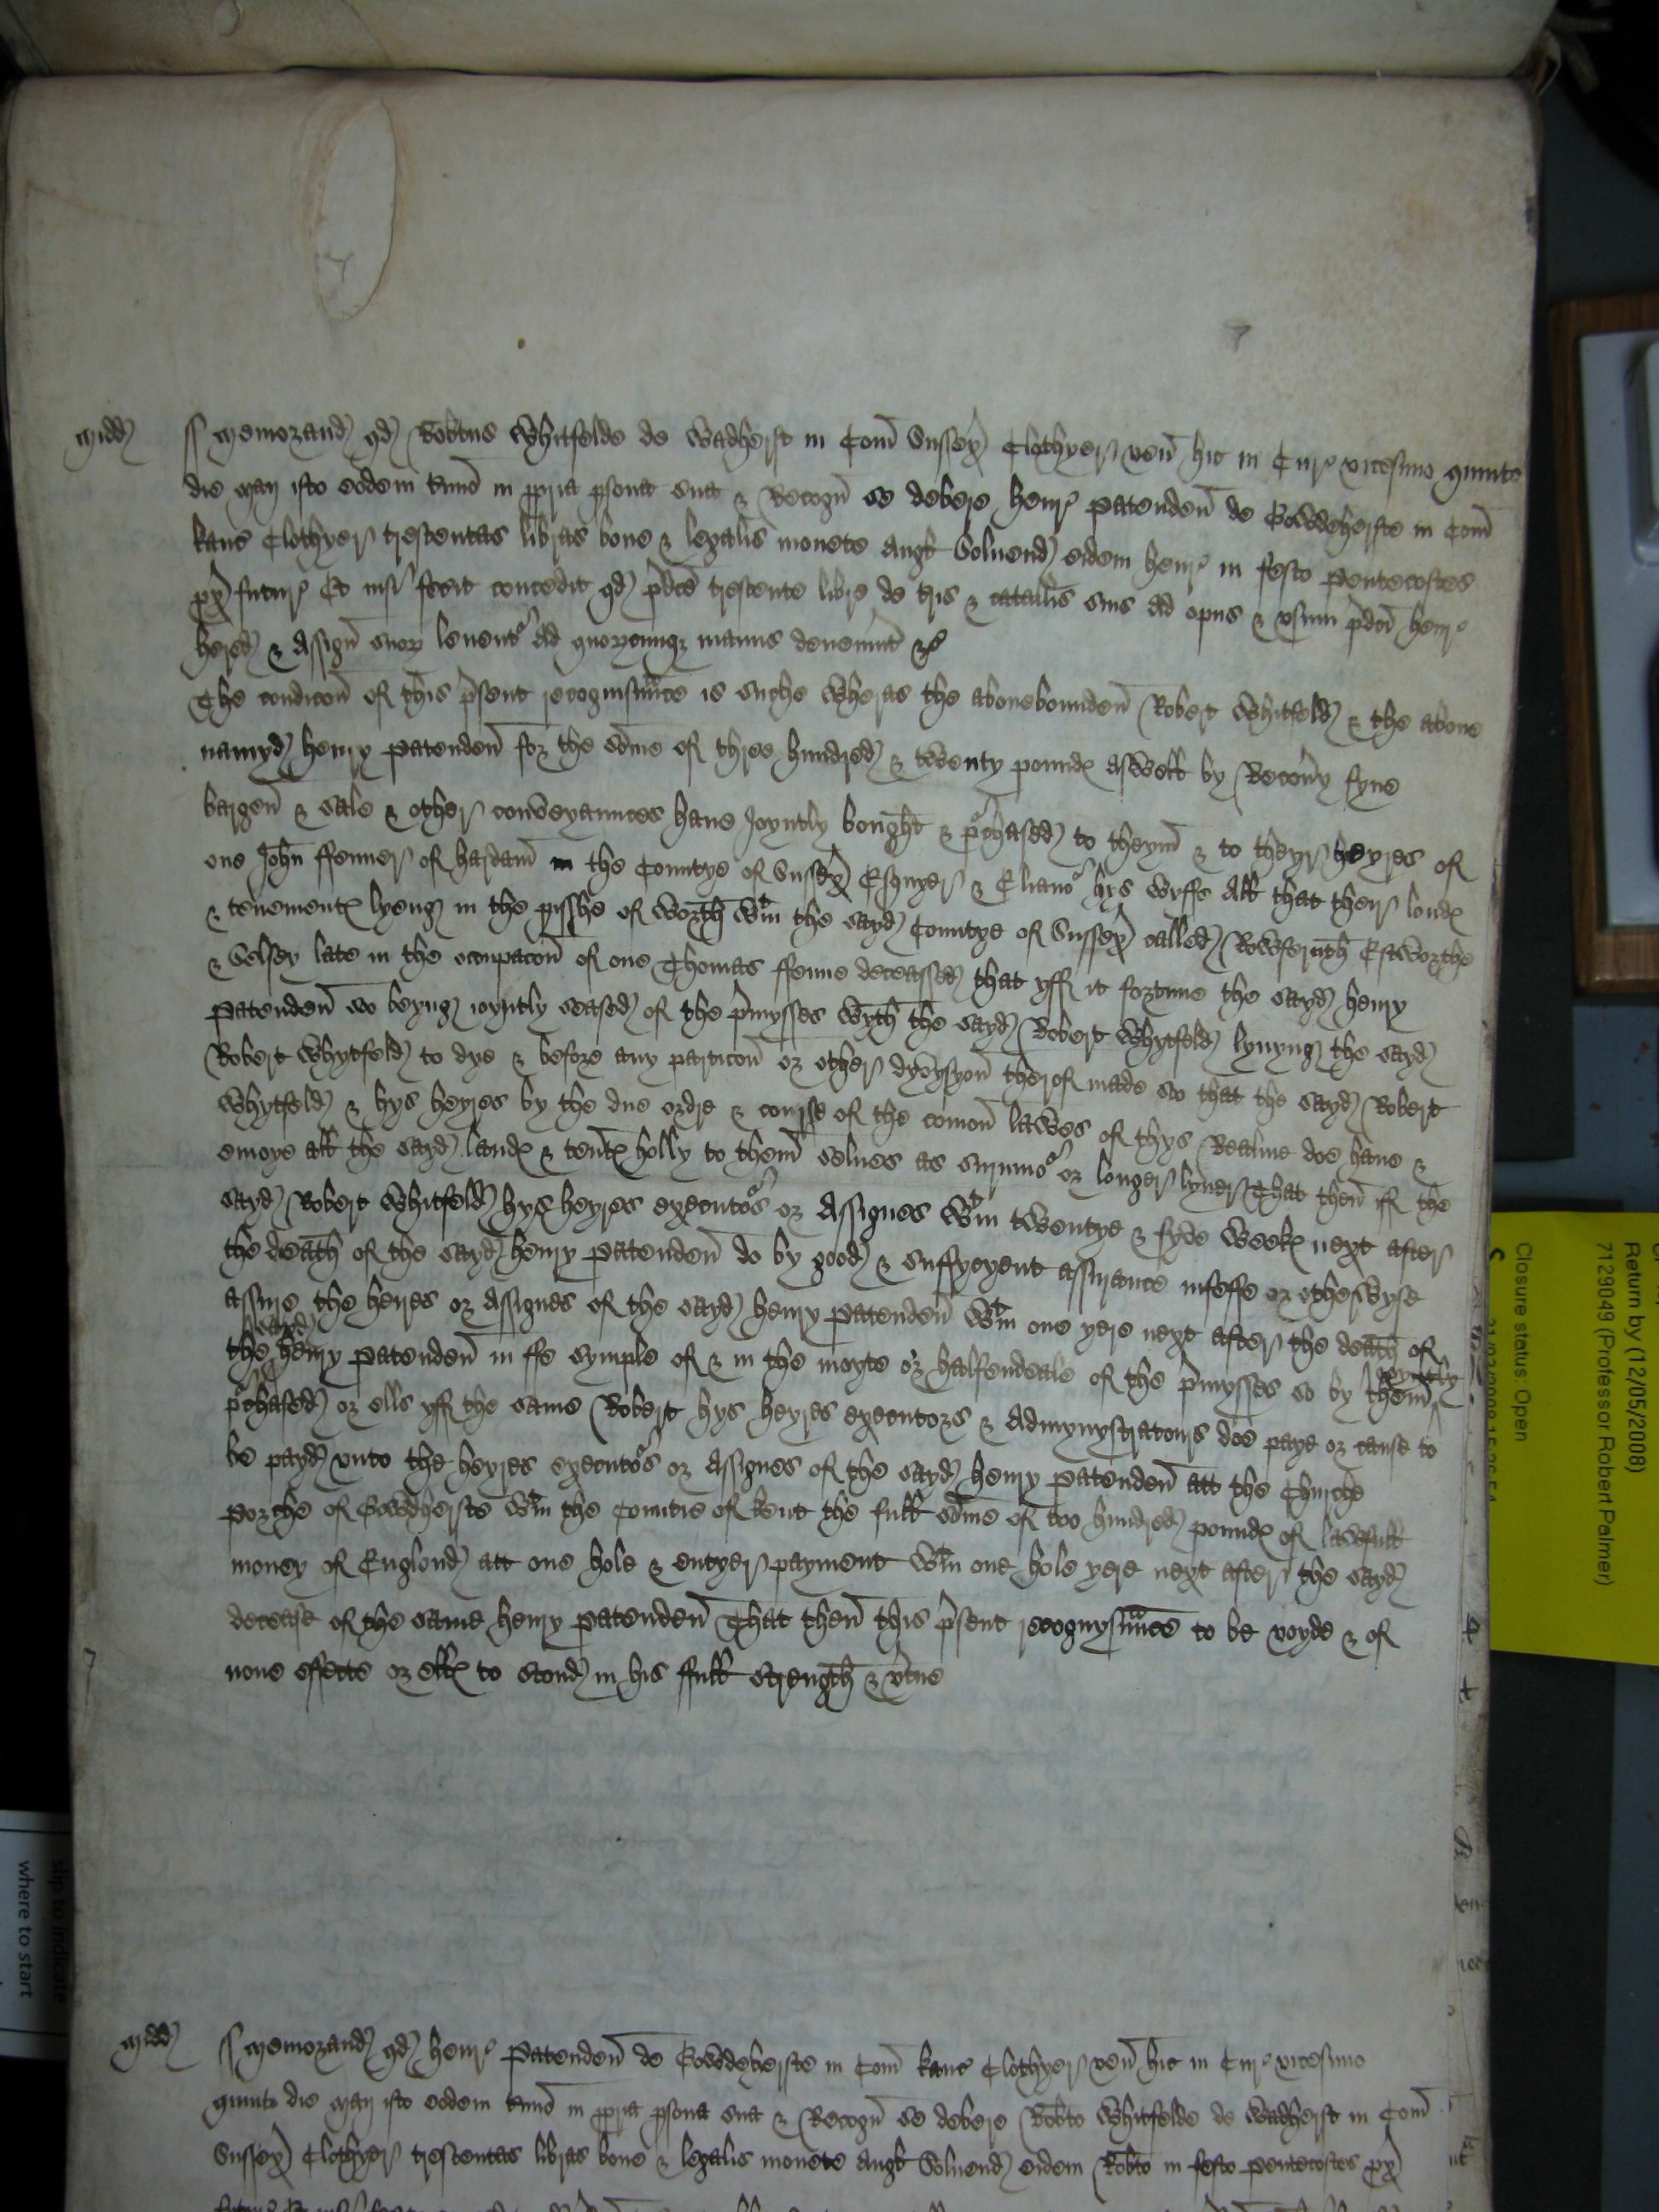 Midd
Memorand qd Robtus Whitfelde de Wadherst in Com Sussex Clothyer ven hic in Cur vicesimo quinto
die Maij isto eodem Tmino in ppria psona sua & Recogn se debere Henr Patenden de Gowdeherste in Com
Kanc Clothyer trescentas libras bone & legalis monete Angl Solvend eidem Henr in festo Pentecostes
px futur Et nisi fecit concedit qd pdce trescente libre de tris & catallis suis ad opus & usum pdci Henr
hered & Assign suor levent ad quorcumq manus devenint &c
The condicon of this psent recognisaunce is suche Wheras the abovebounden Robert Whitfeld & the above
namyd Henry Patenden for the Some of three hundred & twenty pounds aswell by Recovy fyne
bargen & sale & other conveyaunces have Joyntly bought & pchased to theym & to theyr heyres of
one John ffenner of Hardam in the Countye of Sussex Esquyer & Elianor hys wyffe All that their londs
& tenements lyeng in the pisshe of Worth wtin the sayd Countye of Sussex called Rowferuth Estworthe
& Selsey late in the ocupacon of one Thomas ffenne deceassed that yff it fortune the sayd Henry
Patenden so beyng joyntly seased of the pmysses wyth the sayd Robert Whytfeld lyvyng the sayd
Robert Whytfeld to dye & before any particon or other dyvysyon therof made so that the sayd Robert
Whytfeld & hys heyres by the due ordre & course of the comon lawes of thys Realme doe have &
enioye all the sayd lands & tents holly to them selves as survivor or longer lyver That then iff the
sayd Robert Whitfeld hys heyres executors or Assignes wtin twentye & fyve weeks next after
the death of the sayd Henry Patenden do by good & suffycyent assurance infeffe or otherwyse
assure the heires or Assignes of the sayd Henry Patenden wtin one yere next after the death of
the sayd Henry Patenden in ffe symple of & in the moyte or halfendeale of the pmysses so by them joyntly
pchased or ells yff the same Robert hys heyres executors & admynystratours doe paye or cause to
be payd unto the heyres executors or Assignes of the sayd Henry Patenden att the Churche
porche of Gowdherste wtin the Countie of Kent the full some of too hundred pounds of lawfull
money of Englond att one hole & entyer payment wtin one hole yere next after the sayd
decease of the same Henry Patenden That then this psent recognysaunce to be voyde & of
none effecte or ells to stond in his full strength & vtue
Midd
Memorand qd Henr Patenden de Gowdeherste in Com Kanc Clothyer ven hic in Cur vicesimo
quinto die Maij isto eodem Tmino in ppria psona sua & Recogn se debere Robto Whitfelde de Wadherst in Com
Sussex Clothyer trescentas libras bone & legalis monete Angl Solvend eidem Robto in festo Pentecostes px
Closure status: Open
Return by (12/05/2008)
7129049 (Professor Robert Palmer)
slip to indicate
where to start